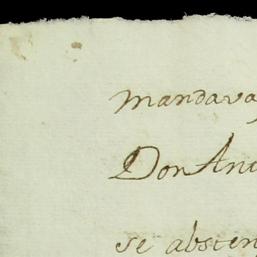 mandava
Don An
se absten